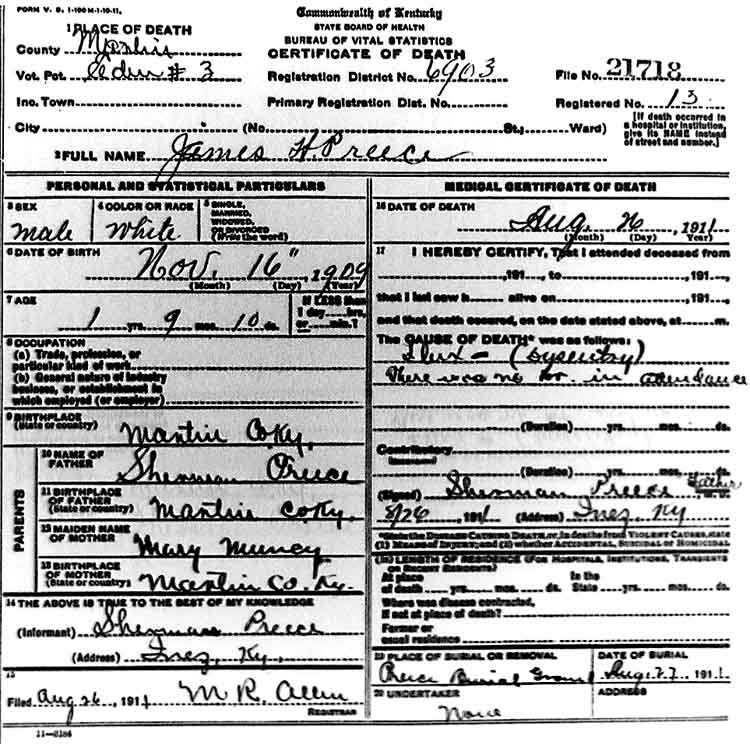 FORM V. S. 1-100M-1-10-11.
Commonwealth of Kentucky
STATE BOARD OF HEALTH
BUREAU OF VITAL STATISTICS
CERTIFICATE OF DEATH
1 PLACE OF DEATH
County Martin
Vot. Pct. Eden # 3
Registration District No. 6903
File No. 21718
Inc. Town
Primary Registration Dist. No.
Registered No. 13
City (No. St.; Ward)
[If death occurred in a hospital or institution, give its NAME instead of street and number.]
2 FULL NAME James H. Preece
PERSONAL AND STATISTICAL PARTICULARS
3 SEX
male
4 COLOR OR RACE
White
5 SINGLE, MARRIED, WIDOWED, OR DIVORCED (Write the word)
6 DATE OF BIRTH
Nov. 16" 1909
(Month) (Day) (Year)
7 AGE
1 yrs. 9 mos. 10 ds.
If LESS than 1 day ... hrs. or ... min.?
8 OCCUPATION
(a) Trade, profession, or particular kind of work
(b) General nature of industry business, or establishment in which employed (or employer)
9 BIRTHPLACE
(State or country)
Martin Co. Ky.
PARENTS
10 NAME OF FATHER
Sherman Preece
11 BIRTHPLACE OF FATHER
(State or country)
Martin Co. Ky.
12 MAIDEN NAME OF MOTHER
Mary Muncy
13 BIRTHPLACE OF MOTHER
(State or country)
Martin Co. Ky.
14 THE ABOVE IS TRUE TO THE BEST OF MY KNOWLEDGE
(Informant) Sherman Preece
(Address) Inez, Ky.
15
Filed Aug 26, 1911 M R. Allen
REGISTRAR
11-3184
MEDICAL CERTIFICATE OF DEATH
16 DATE OF DEATH
Aug. 26, 1911
(Month) (Day) (Year)
17 I HEREBY CERTIFY, That I attended deceased from
, 191 , to , 191 ,
that I last saw h alive on , 191 ,
and that death occurred, on the date stated above, at m.
The CAUSE OF DEATH* was as follows:
Flux - (Dysentry)
There was no Dr. in attendance
(Duration) yrs. mos. ds.
Contributory
(Duration) yrs. mos. ds.
(Signed) Sherman Preece Father
8/26, 1911 (Address) Inez, Ky
*State the DISEASE CAUSING DEATH, or, in deaths from VIOLENT CAUSES, state
(1) MEANS OF INJURY; and (2) whether ACCIDENTAL, SUICIDAL or HOMICIDAL
18 LENGTH OF RESIDENCE (FOR HOSPITALS, INSTITUTIONS, TRANSIENTS OR RECENT RESIDENTS)
At place of death yrs. mos. ds. In the State yrs. mos. ds.
Where was disease contracted,
If not at place of death?
Former or
usual residence
19 PLACE OF BURIAL OR REMOVAL
Preece Burial Ground
DATE OF BURIAL
Aug. 27, 1911
20 UNDERTAKER
None
ADDRESS